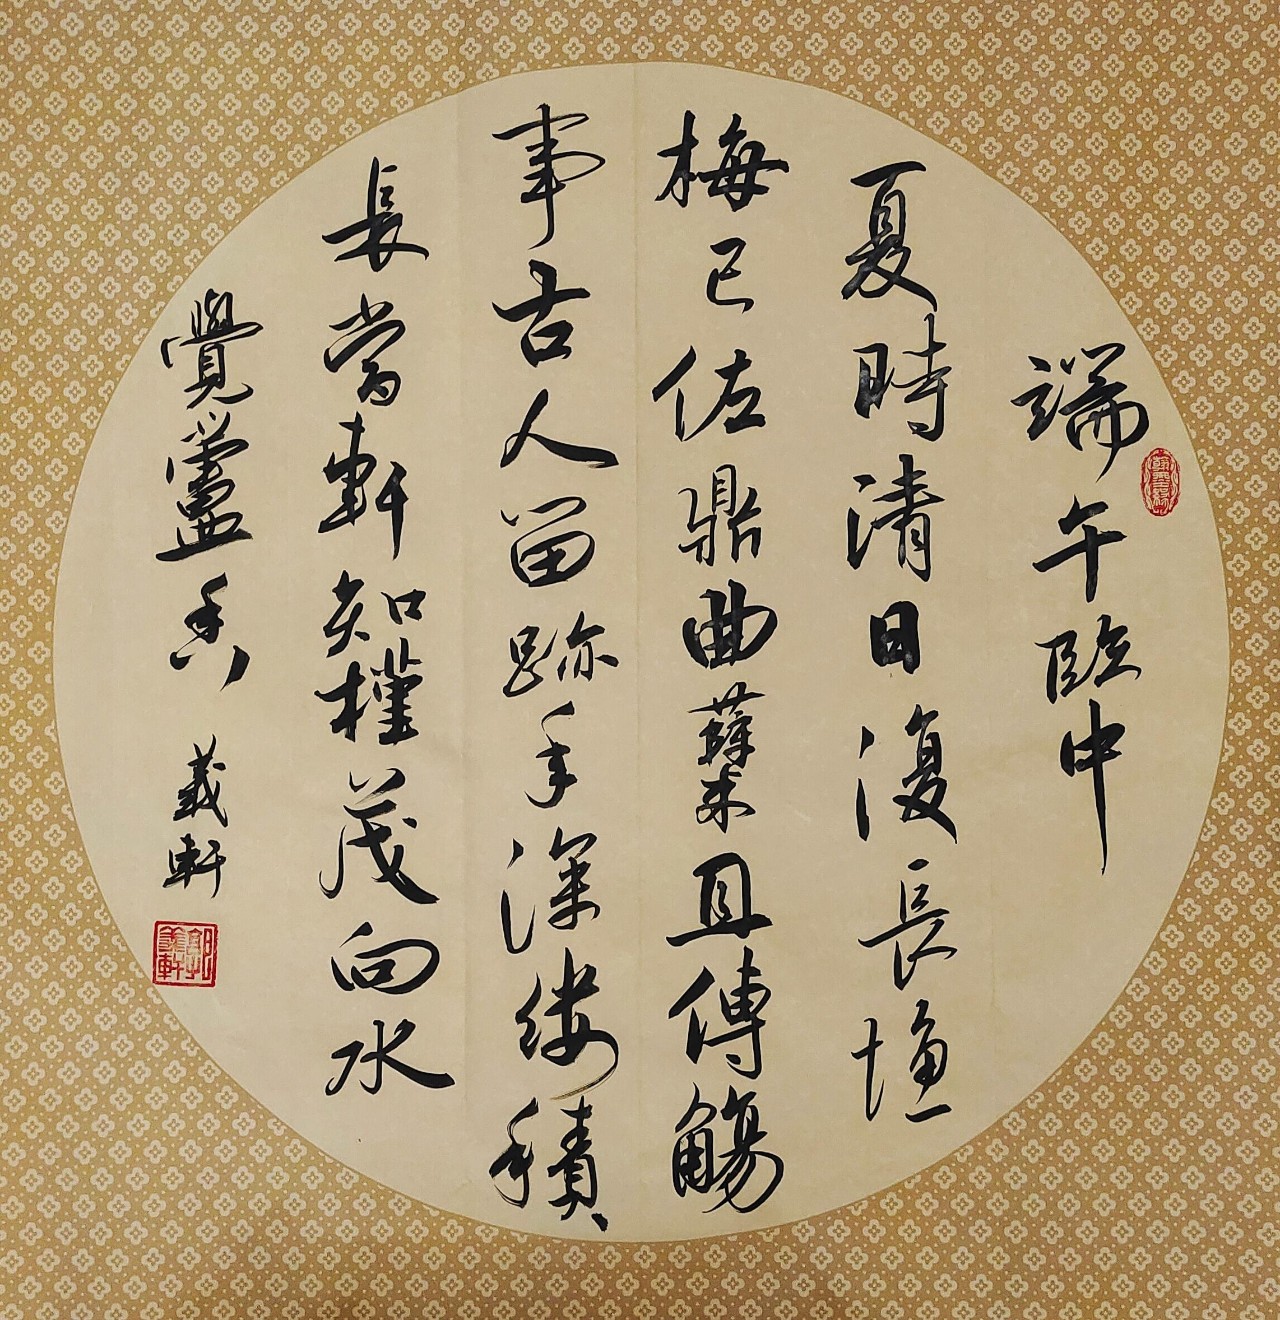 翰墨緣
端午臨中
夏時清日復長塩
梅已佐鼎曲蘖且傳觴
事古人留跡年深缕積
長當軒知槿茂向水
覺蘆香 義軒